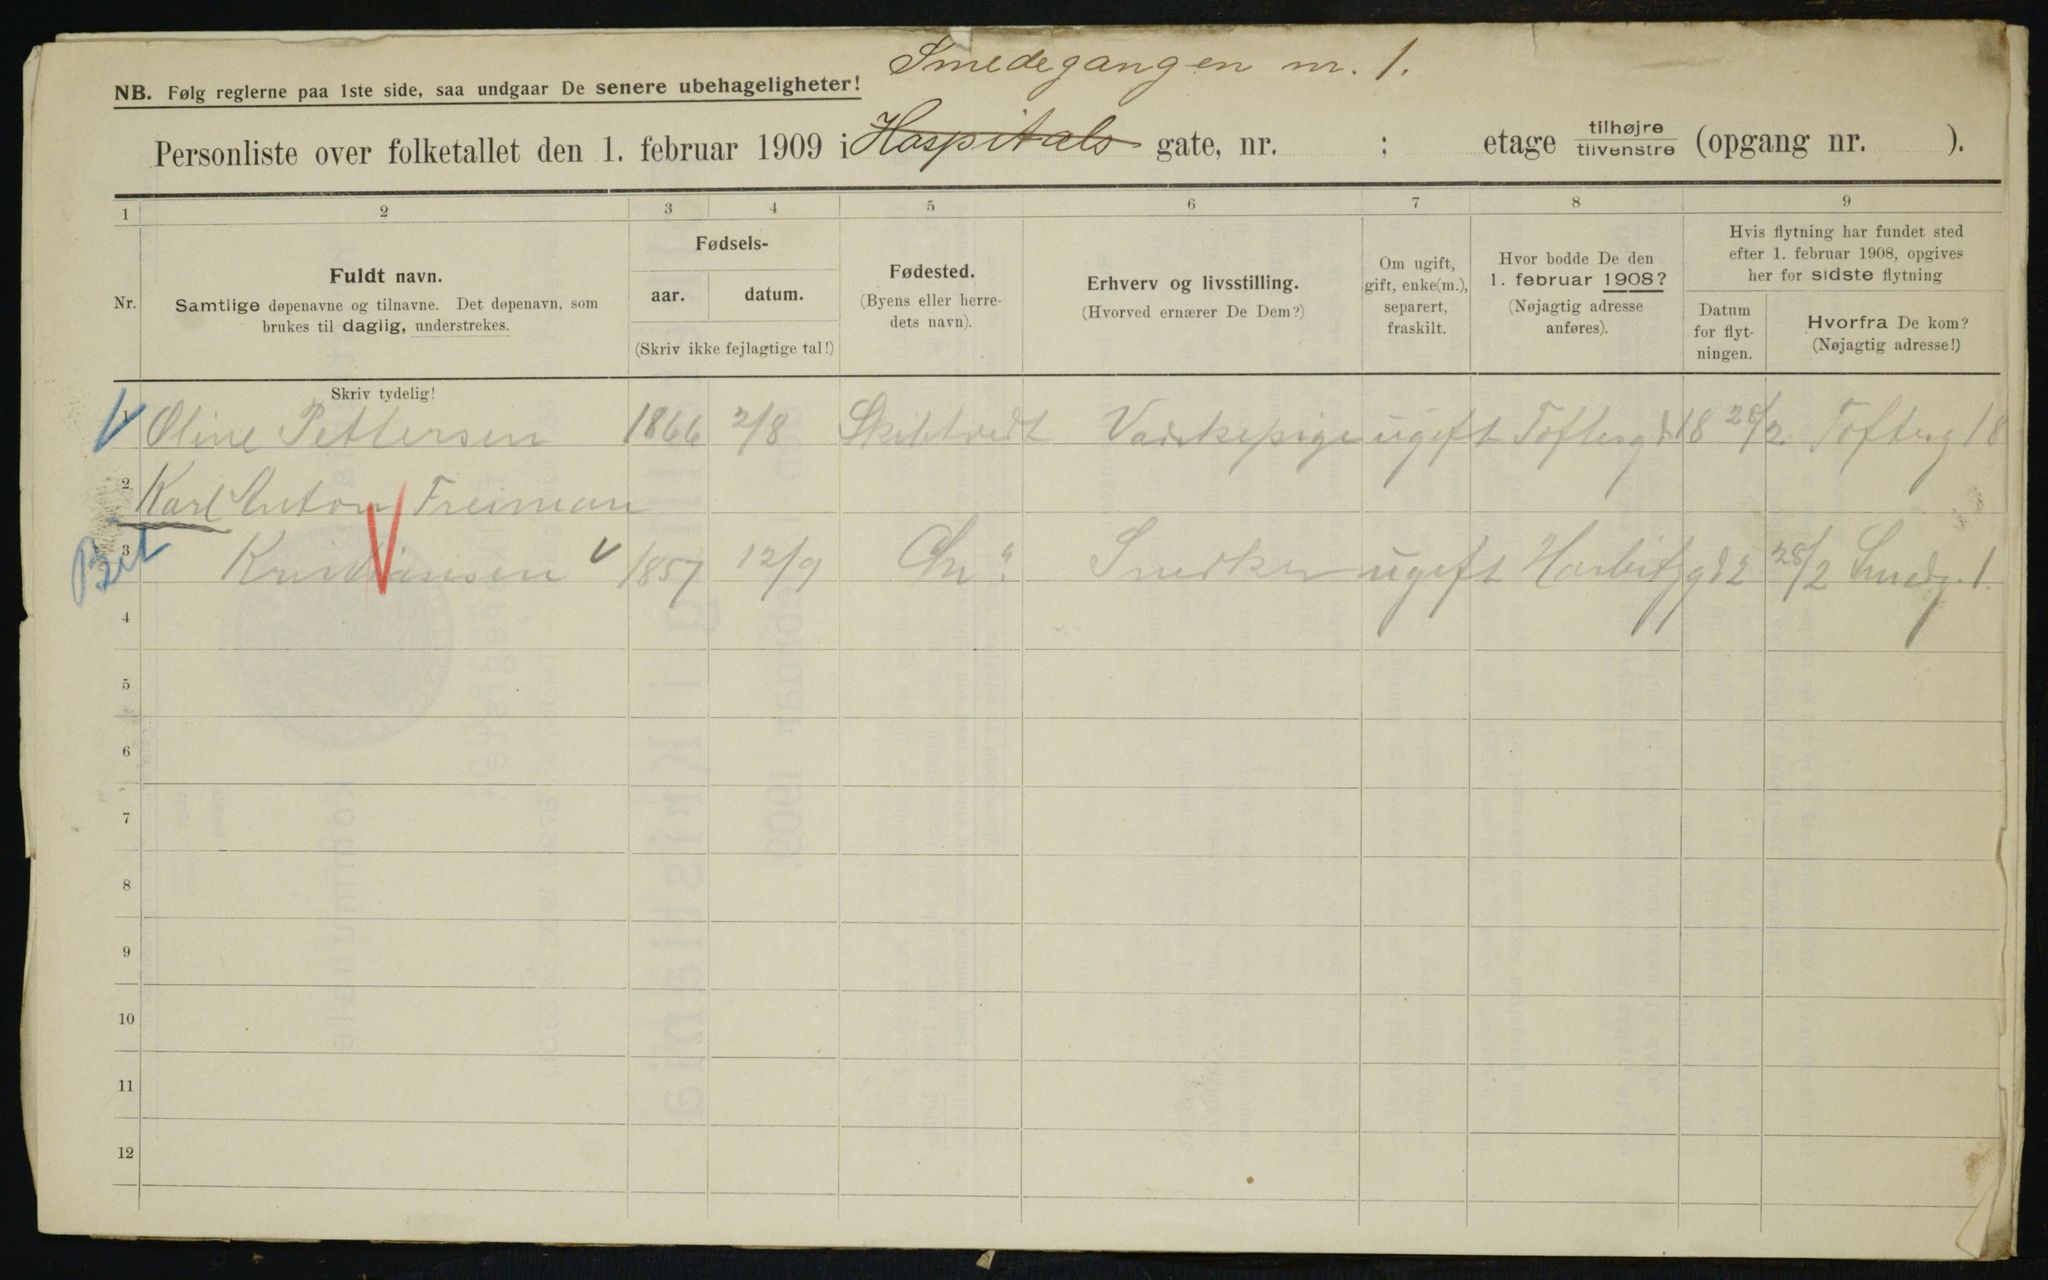 Smedegangen nr. 1.
NB. Følg reglerne paa 1ste side, saa undgaar De senere ubehageligheter!
Personliste over folketallet den 1. februar 1909 i Hospitals gate, nr. ; etage tilhøjre tilvenstre (opgang nr. ).
1 2 3 4 5 6 7 8 9
Nr.
Fuldt navn.
Samtlige døpenavne og tilnavne. Det døpenavn, som
brukes til daglig, understrekes.
Fødsels-
aar. datum.
(Skriv ikke fejlagtige tal!)
Fødested.
(Byens eller herre-
dets navn).
Erhverv og livsstilling.
(Hvorved ernærer De Dem?)
Om ugift,
gift, enke(m.),
separert,
fraskilt.
Hvor bodde De den
1. februar 1908?
(Nøjagtig adresse
anføres).
Hvis flytning har fundet sted
efter 1. februar 1908, opgives
her for sidste flytning
Datum
for flyt-
ningen.
Hvorfra De kom?
(Nøjagtig adresse!)
Skriv tydelig!
1 Oline Pettersen 1866 2/8 Vaskepige ugift Toftesgd 18 28/2 Toftesg 18
2 Karl Anton Freiman
3 Kristiansen 1857 12/9 Chr. Snedker ugift Harbitzgd 2 28/2 Smedg. 1.
4
5
6
7
8
9
10
11
12